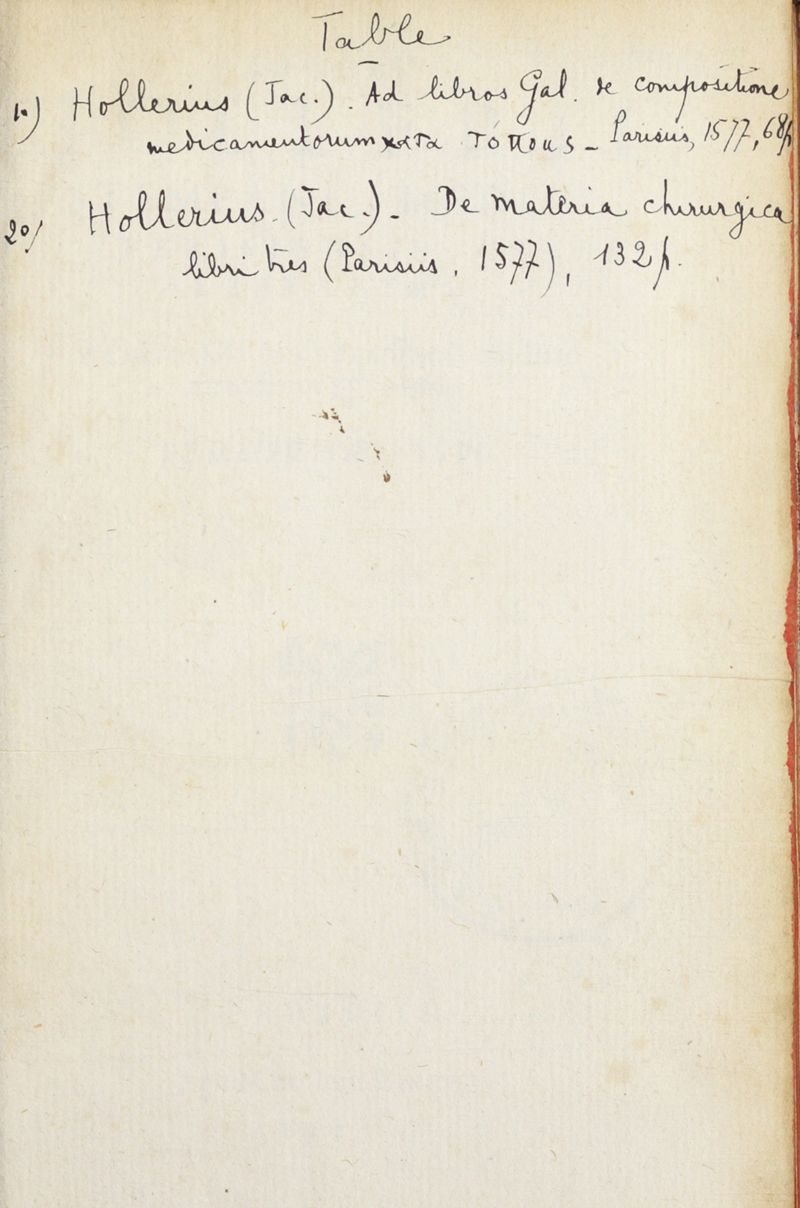 Table
1º) Hollerius (Jac.). Ad libros Gal. de compositione
medicamentorum κατα τόπους – Parisiis, 1577, 68 p
2º/ Hollerius. (Jac.) – De materia chirurgica
libri tres (Parisiis, 1577), 132 p.